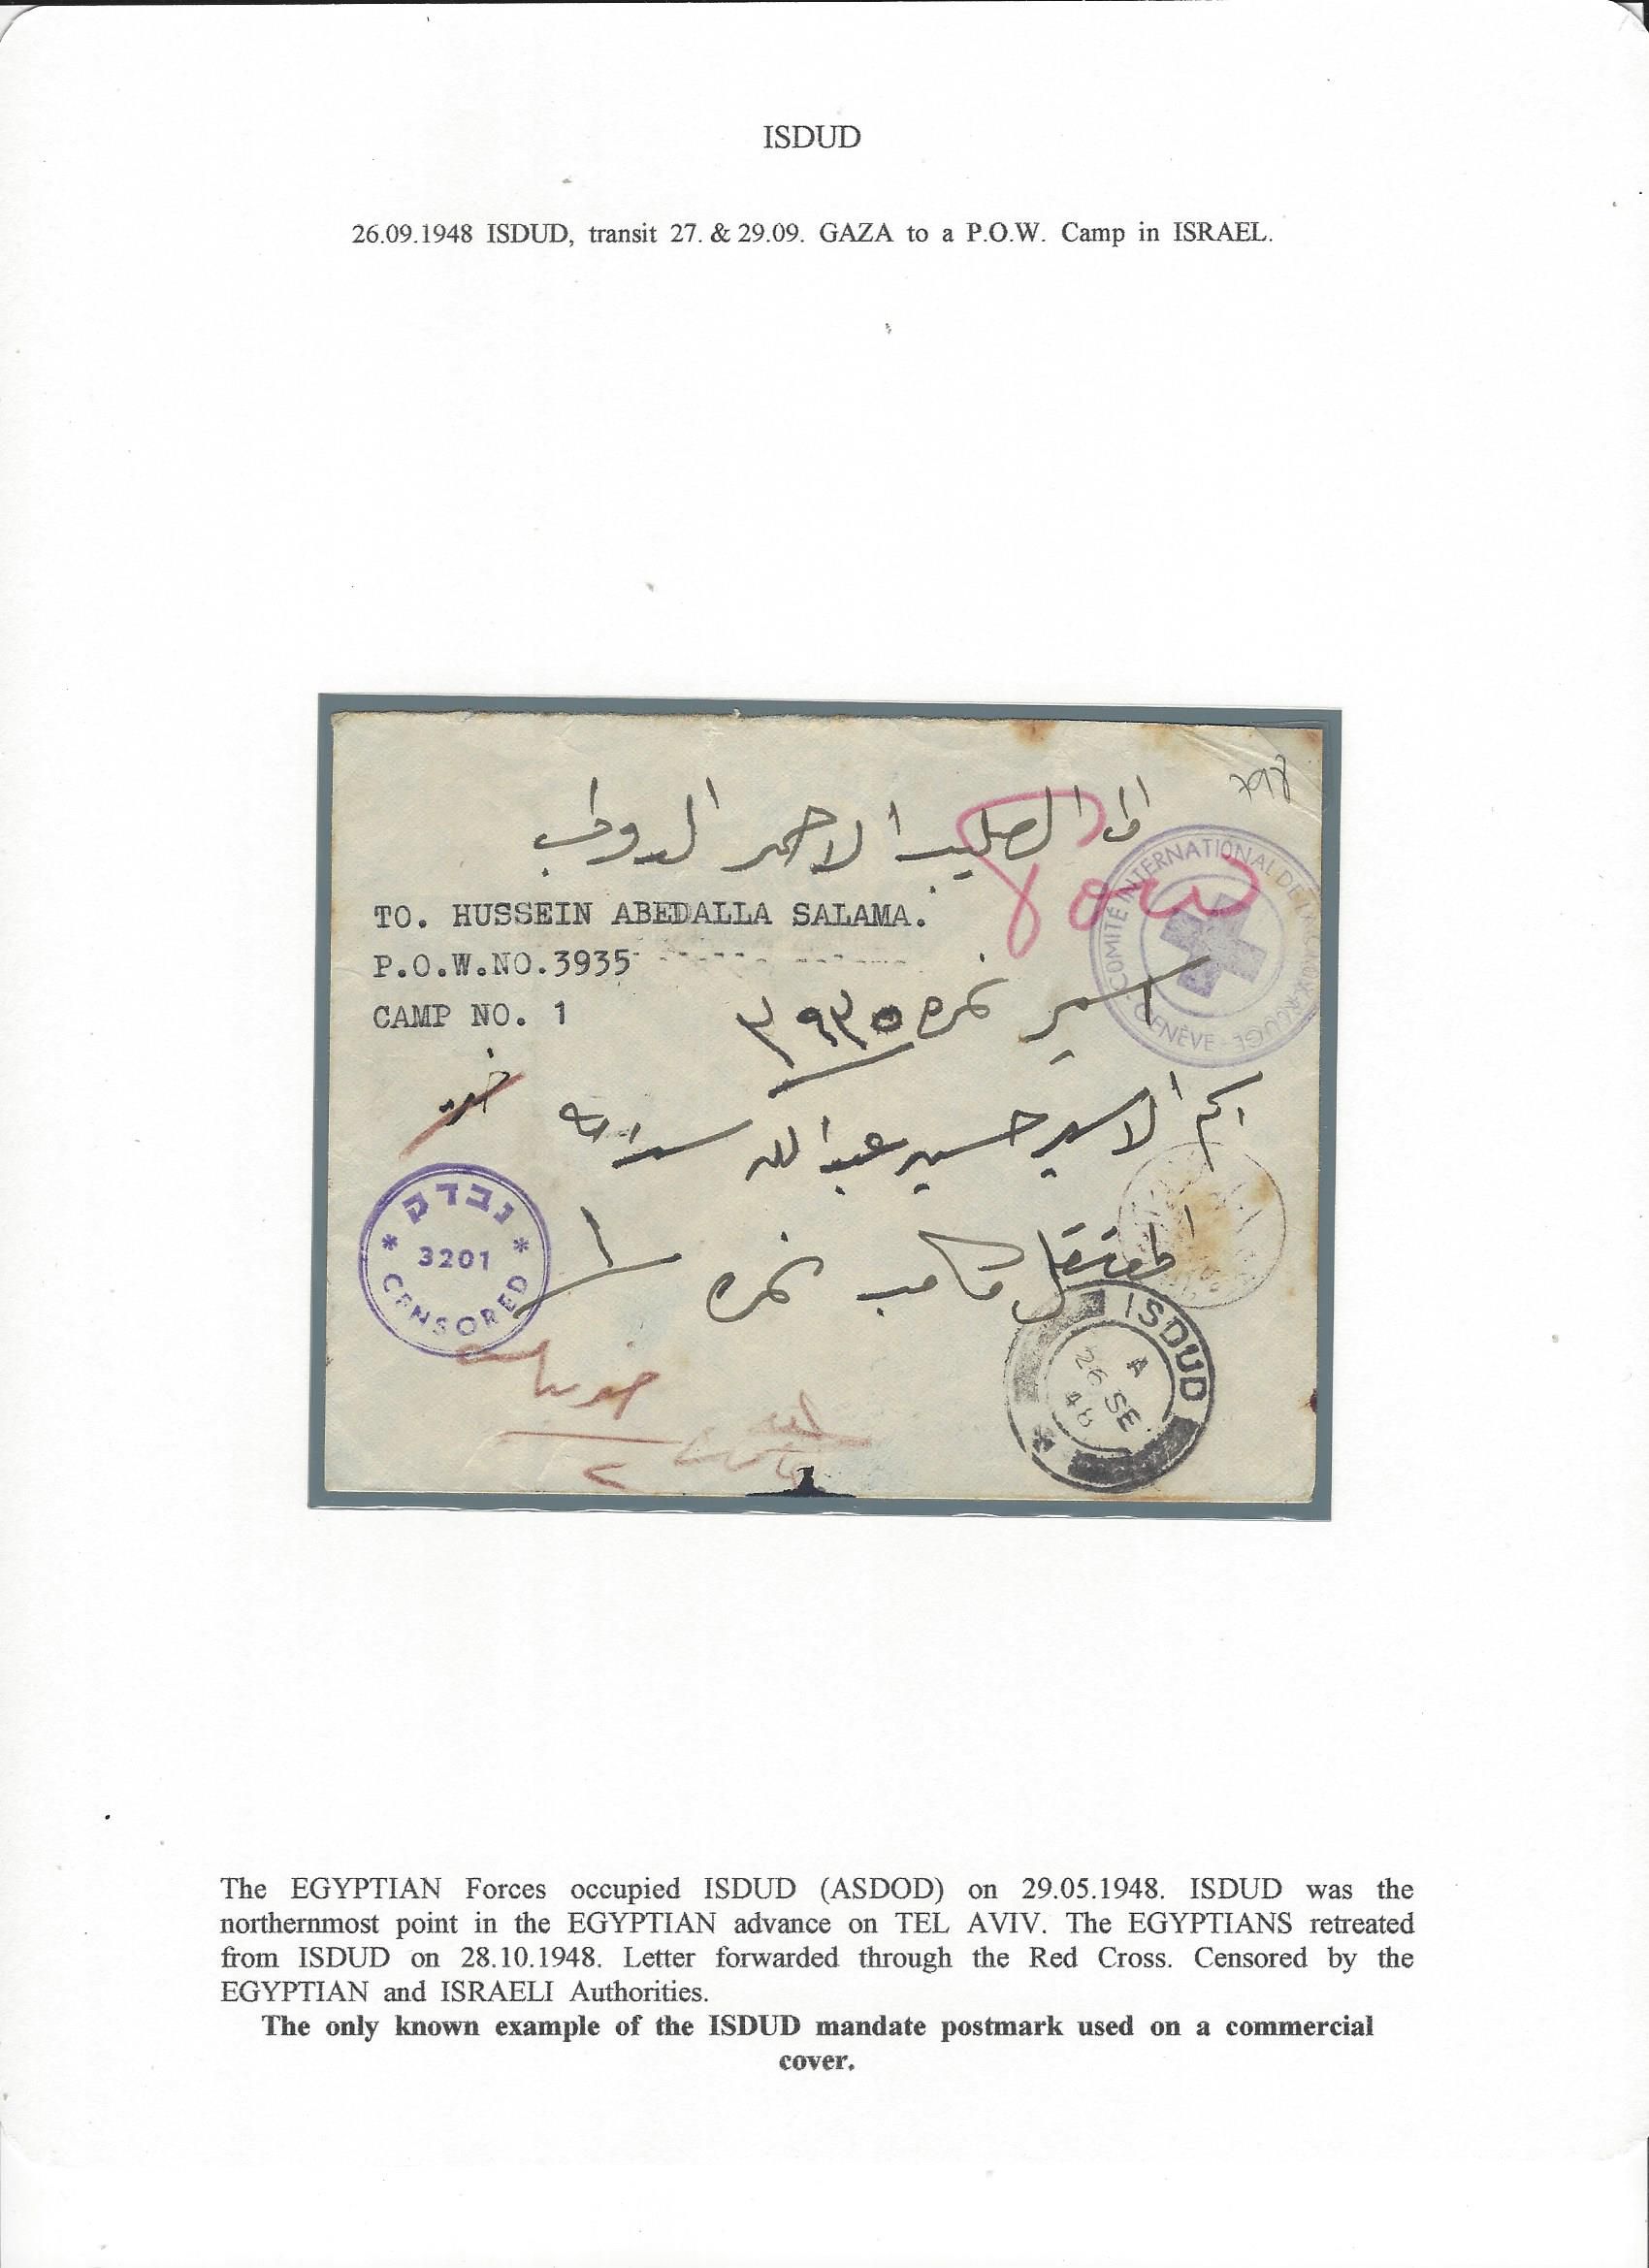 ISDUD
26.09.1948 ISDUD, transit 27. & 29.09. GAZA to a P.O.W. Camp in ISRAEL.
الى الصليب الاحمر الدولي
POW
COMITÉ INTERNATIONAL DE LA CROIX-ROUGE - GENÈVE -
TO. HUSSEIN ABEDALLA SALAMA.
P.O.W.NO.3935
CAMP NO. 1
اسير نمره ٣٩٣٥
الاسير حسين عبدالله سلامه
المعتقل كامب نمره ١
נבדק
* 3201 *
CENSORED
ISDUD
A
26 SE
48
The EGYPTIAN Forces occupied ISDUD (ASDOD) on 29.05.1948. ISDUD was the
northernmost point in the EGYPTIAN advance on TEL AVIV. The EGYPTIANS retreated
from ISDUD on 28.10.1948. Letter forwarded through the Red Cross. Censored by the
EGYPTIAN and ISRAELI Authorities.
The only known example of the ISDUD mandate postmark used on a commercial
cover.